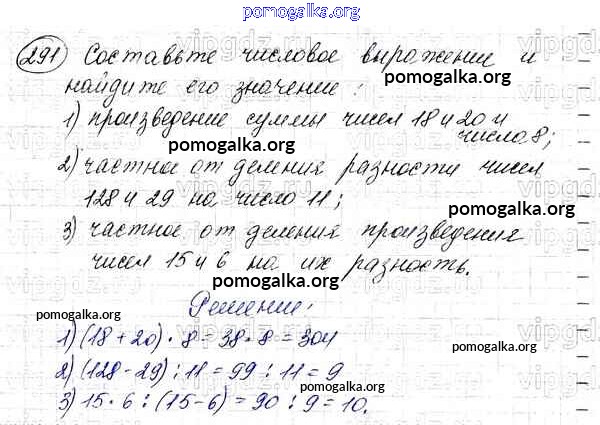 pomogalka.org
291 Составьте числовое выражение и
pomogalka.org
найдите его значение:
1) произведение суммы чисел 18 и 20 и
числа 8;
pomogalka.org
2) частное от деления разности чисел
128 и 29 на число 11;
pomogalka.org
3) частное от деления произведения
чисел 15 и 6 на их разность.
pomogalka.org
Решение:
pomogalka.org
1) (18 + 20) · 8 = 38 · 8 = 304
pomogalka.org
2) (128 - 29) : 11 = 99 : 11 = 9
pomogalka.org
3) 15 · 6 : (15 - 6) = 90 : 9 = 10.